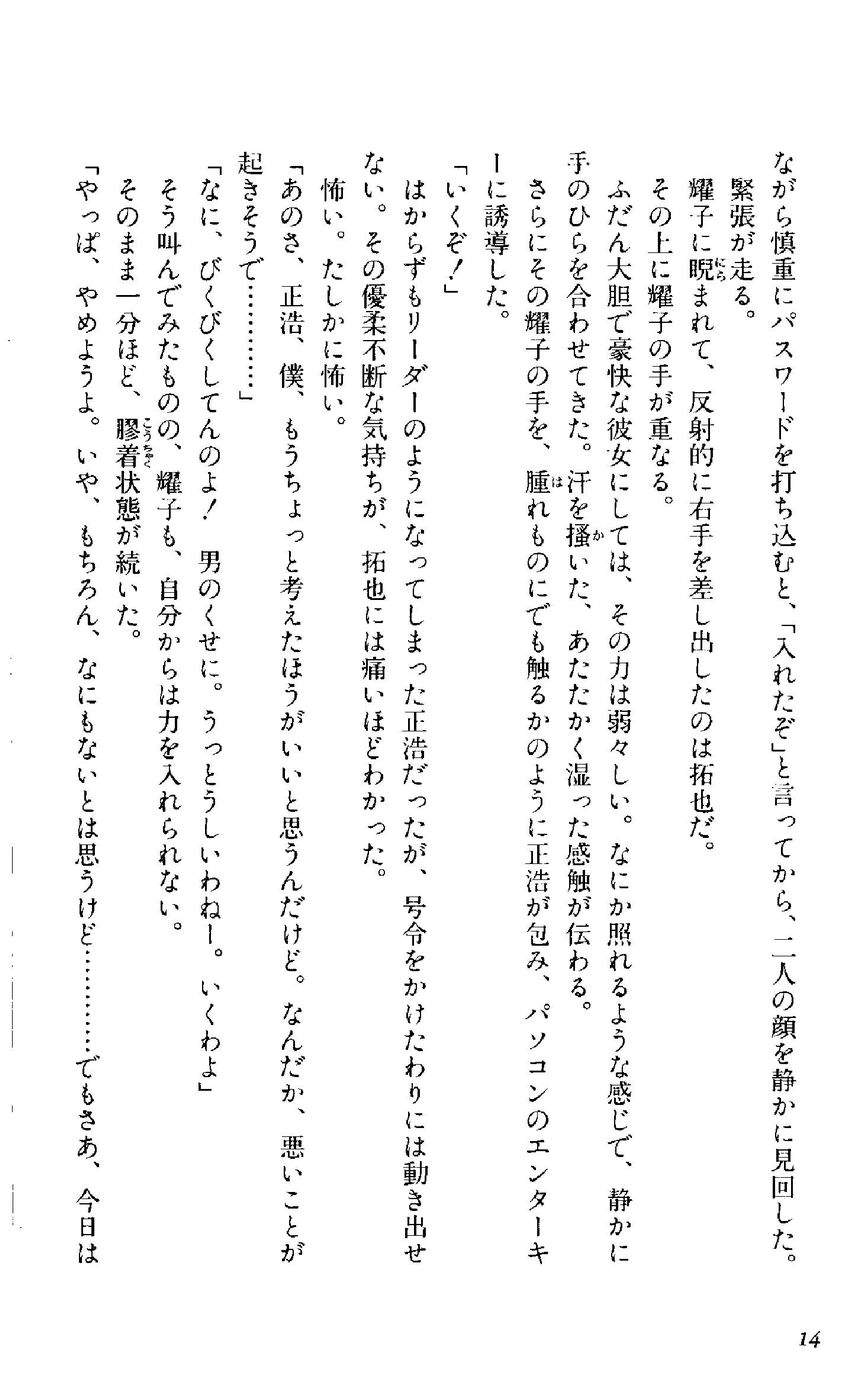 ながら慎重にパスワードを打ち込むと、「入れたぞ」と言ってから、二人の顔を静かに見回した。
緊張が走る。
耀子に睨まれて、反射的に右手を差し出したのは拓也だ。
その上に耀子の手が重なる。
ふだん大胆で豪快な彼女にしては、その力は弱々しい。なにか照れるような感じで、静かに
手のひらを合わせてきた。汗を掻いた、あたたかく湿った感触が伝わる。
さらにその耀子の手を、腫れものにでも触るかのように正浩が包み、パソコンのエンターキ
ーに誘導した。
「いくぞ！」
はからずもリーダーのようになってしまった正浩だったが、号令をかけたわりには動き出せ
ない。その優柔不断な気持ちが、拓也には痛いほどわかった。
怖い。たしかに怖い。
「あのさ、正浩、僕、もうちょっと考えたほうがいいと思うんだけど。なんだか、悪いことが
起きそうで…………」
「なに、びくびくしてんのよ！　男のくせに。うっとうしいわねー。いくわよ」
そう叫んでみたものの、耀子も、自分からは力を入れられない。
そのまま一分ほど、膠着状態が続いた。
「やっぱ、やめようよ。いや、もちろん、なにもないとは思うけど…………でもさあ、今日は
14